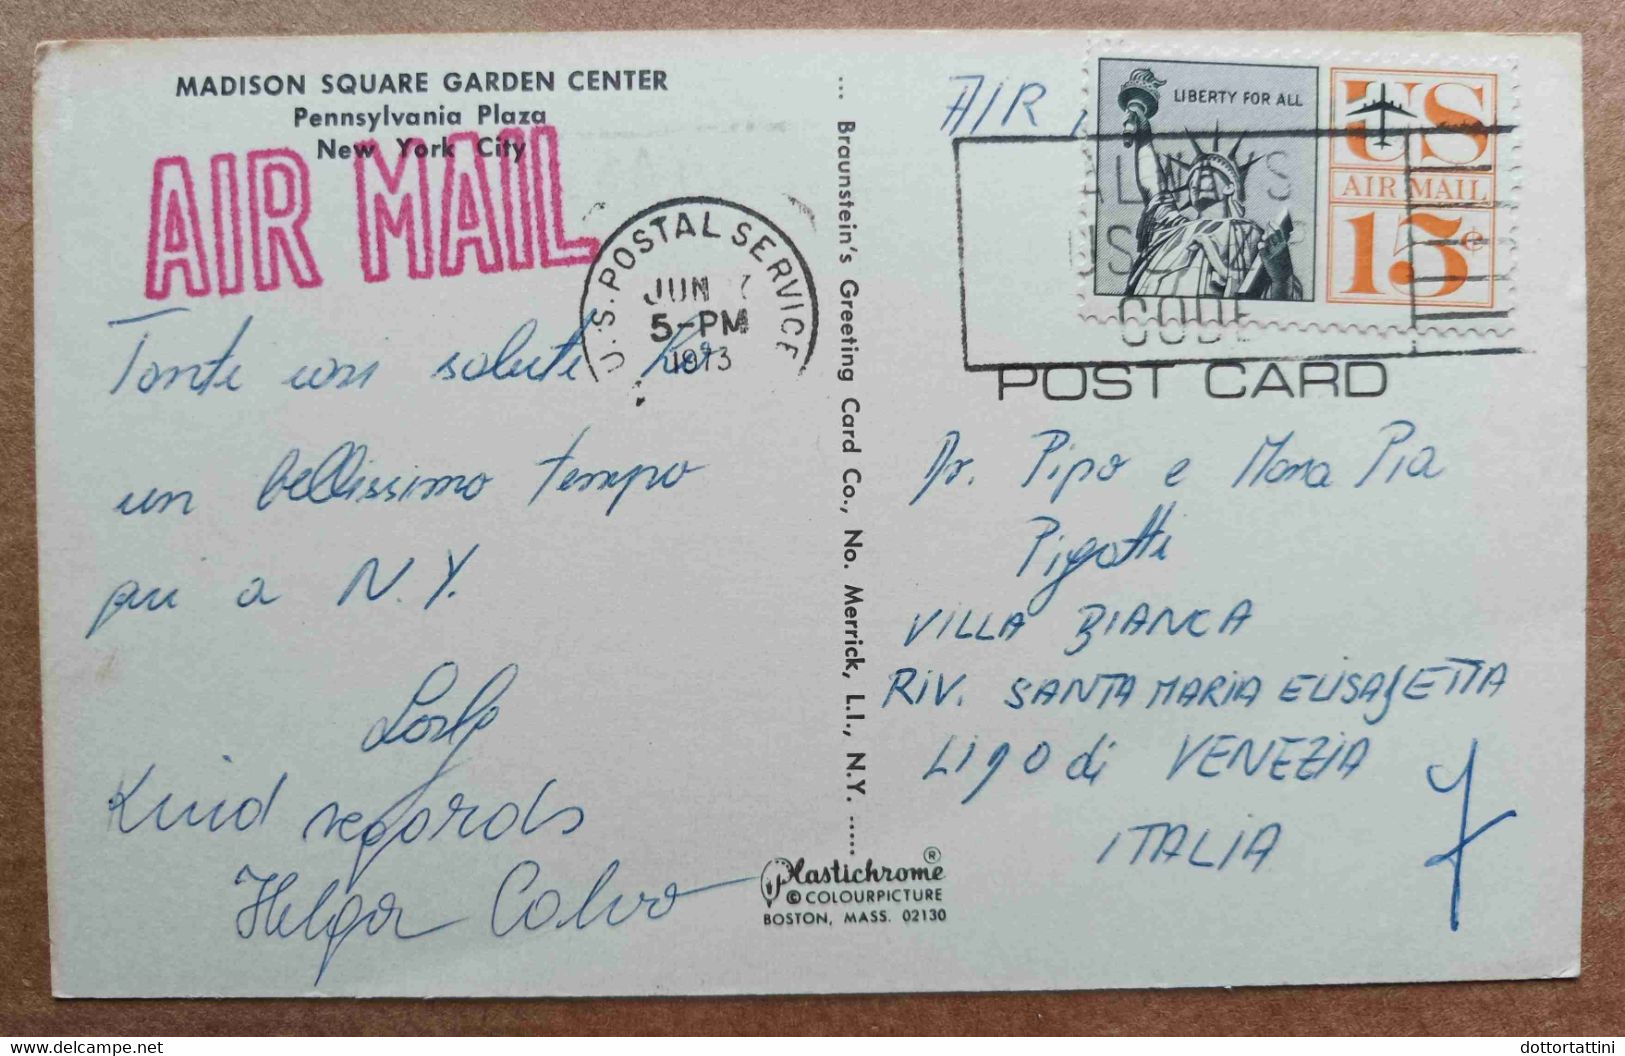 MADISON SQUARE GARDEN CENTER
Pennsylvania Plaza
New York City
AIR MAIL
U.S. POSTAL SERVICE
JUN 7
5-PM
1973
Tanti cari saluti
un bellissimo tempo
qui a N.Y.
Kind regards
Helga Calvo
... Braunstein's Greeting Card Co., No. Merrick, L.I., N.Y. .....
Plastichrome®
© COLOURPICTURE
BOSTON, MASS. 02130
AIR
LIBERTY FOR ALL
US
AIR MAIL
15c
CODE
POST CARD
Dr. Pipo e Maria Pia
Pigatti
VILLA BIANCA
RIV. SANTA MARIA ELISABETTA
LIDO di VENEZIA
ITALIA
dottortattini
delcampe.net